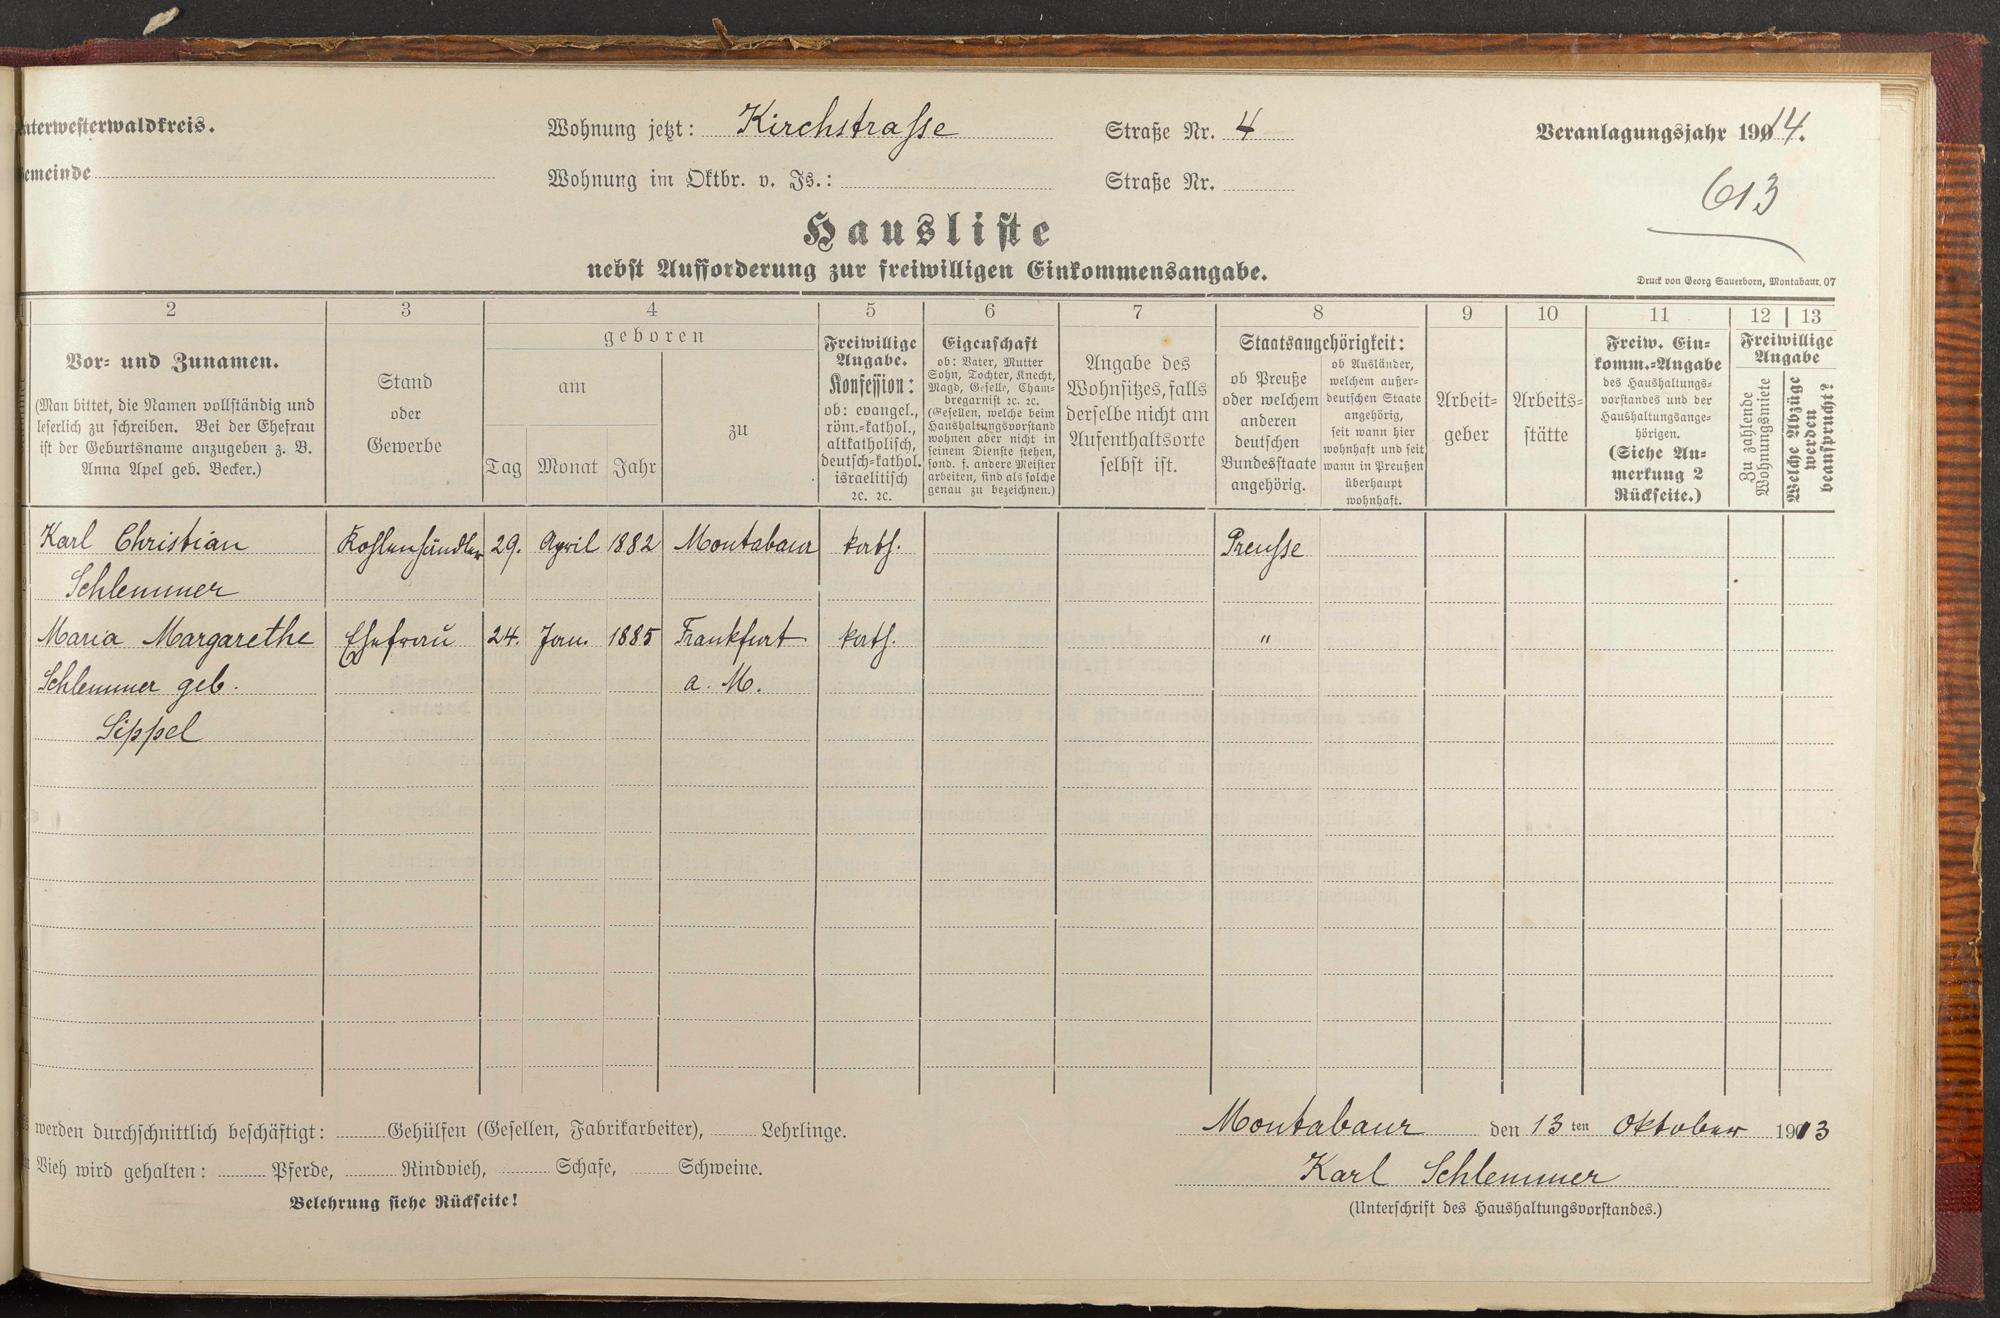 nterwesterwaldkreis.
Wohnung jetzt: Kirchstrasse Straße Nr. 4
Veranlagungsjahr 19014.
emeinde
Wohnung im Oktbr. v. Js.: Straße Nr.
613
Hausliste
nebst Aufforderung zur freiwilligen Einkommensangabe.
Druck von Georg Sauerborn, Montabaur. 07
2 3 4 5 6 7 8 9 10 11 12 13
Vor- und Zunamen.
(Man bittet, die Namen vollständig und
leserlich zu schreiben. Bei der Ehefrau
ist der Geburtsname anzugeben z. B.
Anna Apel geb. Becker.)
Stand
oder
Gewerbe
geboren
am
Tag Monat Jahr
zu
Freiwillige
Angabe.
Konfession:
ob: evangel.,
röm.-kathol.,
altkatholisch,
deutsch-kathol.
israelitisch
ꝛc. ꝛc.
Eigenschaft
ob: Vater, Mutter
Sohn, Tochter, Knecht,
Magd, Geselle, Cham-
bregarnist ꝛc. ꝛc.
(Gesellen, welche beim
Haushaltungsvorstand
wohnen aber nicht in
seinem Dienste stehen,
sond. f. andere Meister
arbeiten, sind als solche
genau zu bezeichnen.)
Angabe des
Wohnsitzes, falls
derselbe nicht am
Aufenthaltsorte
selbst ist.
Staatsangehörigkeit:
ob Preuße
oder welchem
anderen
deutschen
Bundesstaate
angehörig.
ob Ausländer,
welchem außer-
deutschen Staate
angehörig,
seit wann hier
wohnhaft und seit
wann in Preußen
überhaupt
wohnhaft.
Arbeit-
geber
Arbeits-
stätte
Freiw. Ein-
komm.-Angabe
des Haushaltungs-
vorstandes und der
Haushaltungsange-
hörigen.
(Siehe An-
merkung 2
Rückseite.)
Freiwillige
Angabe
Zu zahlende
Wohnungsmiete
Welche Abzüge
werden
beansprucht?
Karl Christian Kohlenhändler 29. April 1882 Montabaur kath. Preusse
Schlemmer
Maria Margarethe Ehefrau 24. Jan. 1885 Frankfurt kath. "
Schlemmer geb. a. M.
Sippel
werden durchschnittlich beschäftigt: Gehülfen (Gesellen, Fabrikarbeiter), Lehrlinge.
Montabaur den 13 ten Oktober 19013
Vieh wird gehalten: Pferde, Rindvieh, Schafe, Schweine.
Karl Schlemmer
Belehrung siehe Rückseite!
(Unterschrift des Haushaltungsvorstandes.)